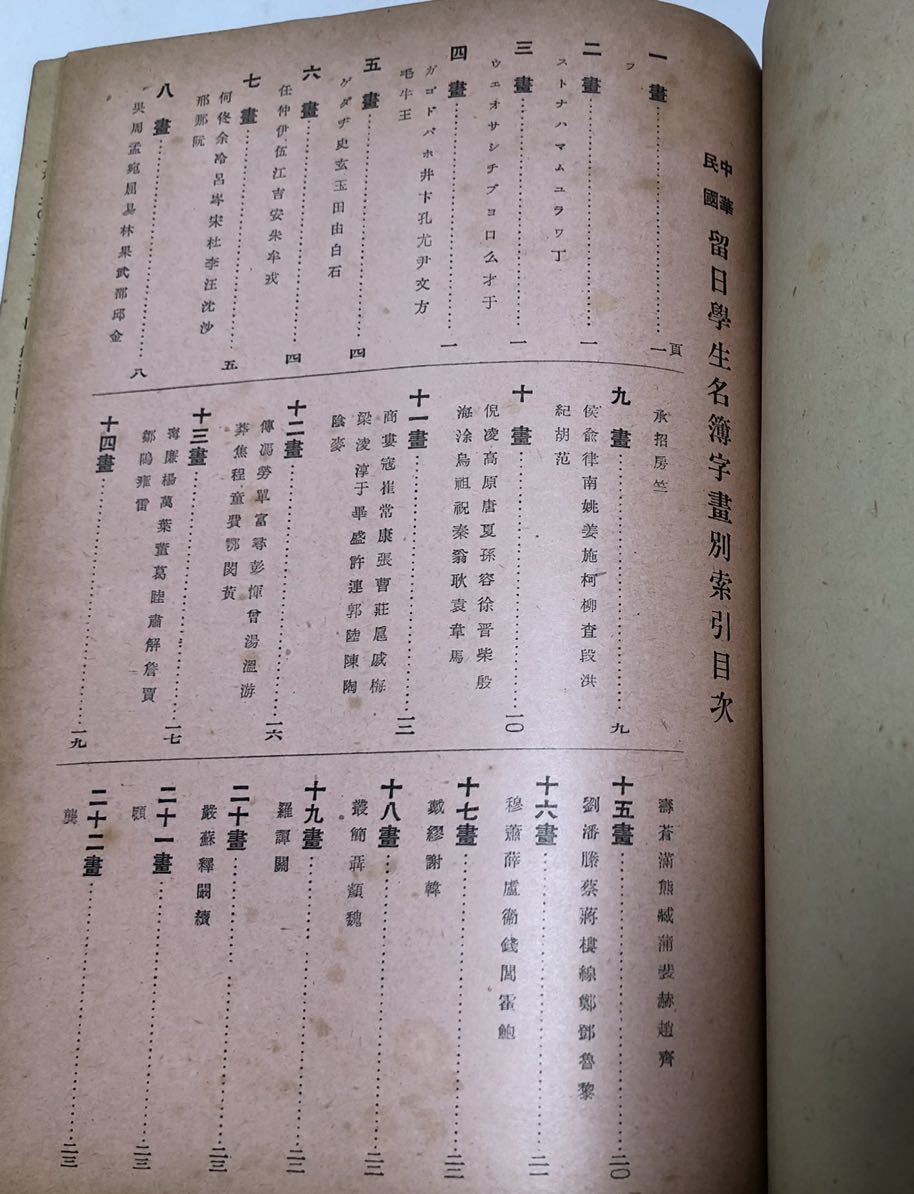 中華民國 留日學生名簿字畫別索引目次
頁
一畫…………一
フ
二畫…………一
ストナハマムユラワ丁
三畫…………一
ウエオサシチブヨロ么才于
四畫…………一
ガゴドバホ井卞孔尤尹文方
毛牛王
五畫…………四
ゲダヂ史玄玉田由白石
六畫…………四
任仲伊伍江吉安朱牟戎
七畫…………五
何佟余冷呂岑宋杜李汪沈沙
邢那阮
八畫…………八
吳周孟宛屈易林果武邵邱金
承招房竺
九畫…………九
侯俞律南姚姜施柯柳査段洪
紀胡范
十畫…………一〇
倪凌高原唐夏孫容徐晋柴殷
海涂烏祖祝秦翁耿袁韋馬
十一畫…………一三
商婁寇崔常康張曹莊扈戚梅
梁淩淳于畢盛許連郭陸陳陶
陰麥
十二畫…………一六
傅馮勞單富尋彭惲曾湯溫游
葬焦程童費鄂閔黃
十三畫…………一七
廉楊萬葉董葛陸肅解詹賈
鄒鳴雍雷
十四畫…………一九
壽蒼滿熊臧蒲裴赫趙齊
十五畫…………二〇
劉潘滕蔡蔣樓線鄭鄧魯黎
十六畫…………二一
穆蕭薛盧衞錢閻霍鮑
十七畫…………二二
戴繆謝韓
十八畫…………二二
叢簡聶顓魏
十九畫…………二二
羅譚關
二十畫…………二三
嚴蘇釋闞續
二十一畫…………二三
顧
二十二畫…………二三
龔